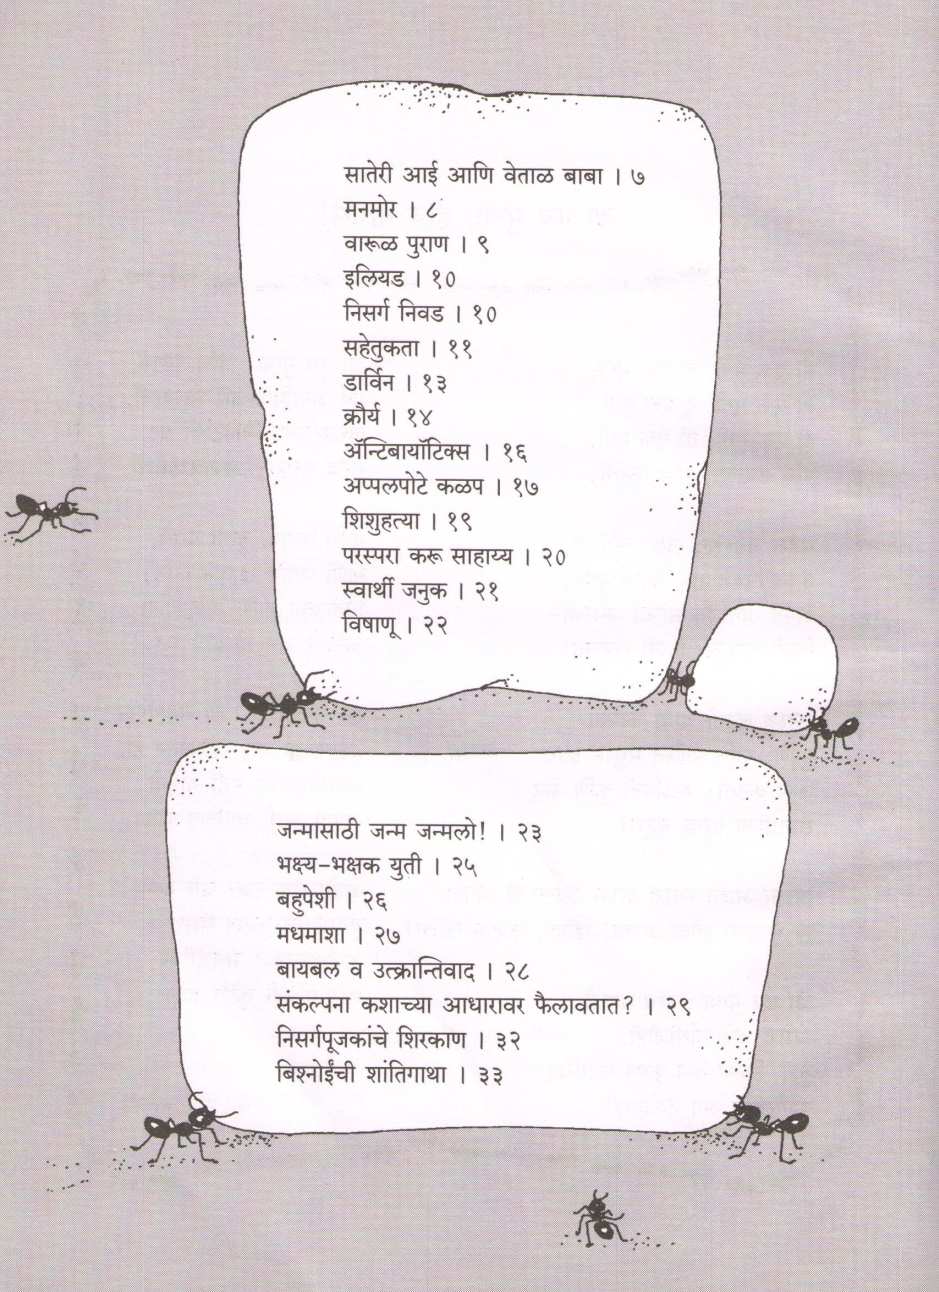 सातेरी आई आणि वेताळ बाबा । ७
मनमोर । ८
वारूळ पुराण । ९
इलियड । १०
निसर्ग निवड । १०
सहेतुकता । ११
डार्विन । १३
क्रौर्य । १४
ॲन्टिबायॉटिक्स । १६
अप्पलपोटे कळप । १७
शिशुहत्या । १९
परस्परा करू साहाय्य । २०
स्वार्थी जनुक । २१
विषाणू । २२
जन्मासाठी जन्म जन्मलो! । २३
भक्ष्य-भक्षक युती । २५
बहुपेशी । २६
मधमाशा । २७
बायबल व उत्क्रान्तिवाद । २८
संकल्पना कशाच्या आधारावर फैलावतात? । २९
निसर्गपूजकांचे शिरकाण । ३२
बिश्नोईंची शांतिगाथा । ३३